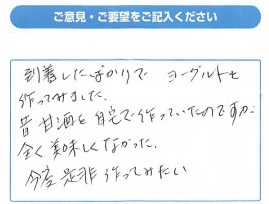 ご意見・ご要望をご記入ください
到着したばかりで ヨーグルトを
作ってみました。
昔甘酒を自宅で作っていたのですが、
全く美味しくなかった。
今度是非作ってみたい